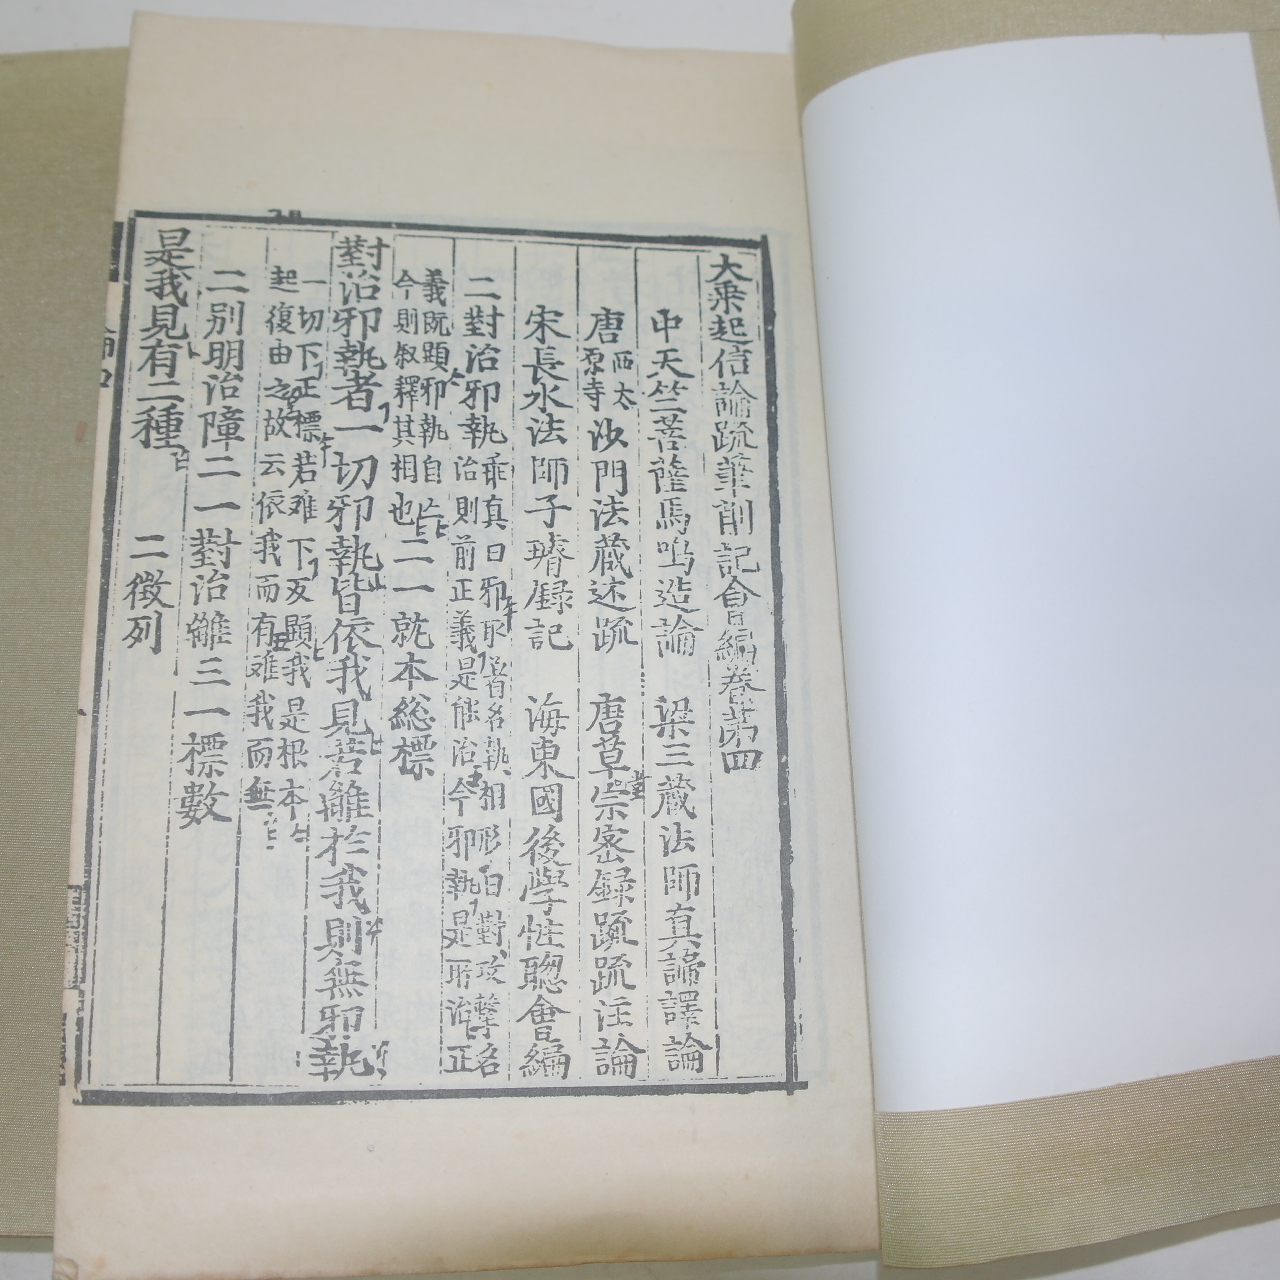 大乗起信論疏筆削記會編卷第四
中天竺菩薩馬鳴造論 梁三藏法師真諦譯論
唐西太原寺沙門法藏述疏 唐草堂宗密録疏注論
宋長水法師子璿録記 海東國後學性聰會編
二對治邪執乖真曰邪取着名執相形曰對攻擊名
治則前正義是能治今邪執是所治正
義既顯邪執自亡
今則叙釋其相也二一就本総標
對治邪執者一切邪執皆依我見若離於我則無邪執
一切下正標若难下反顯我是根本
起復由之故云依我而有难我而無
二别明治障二一對治離三一標數
是我見有二種 二徴列